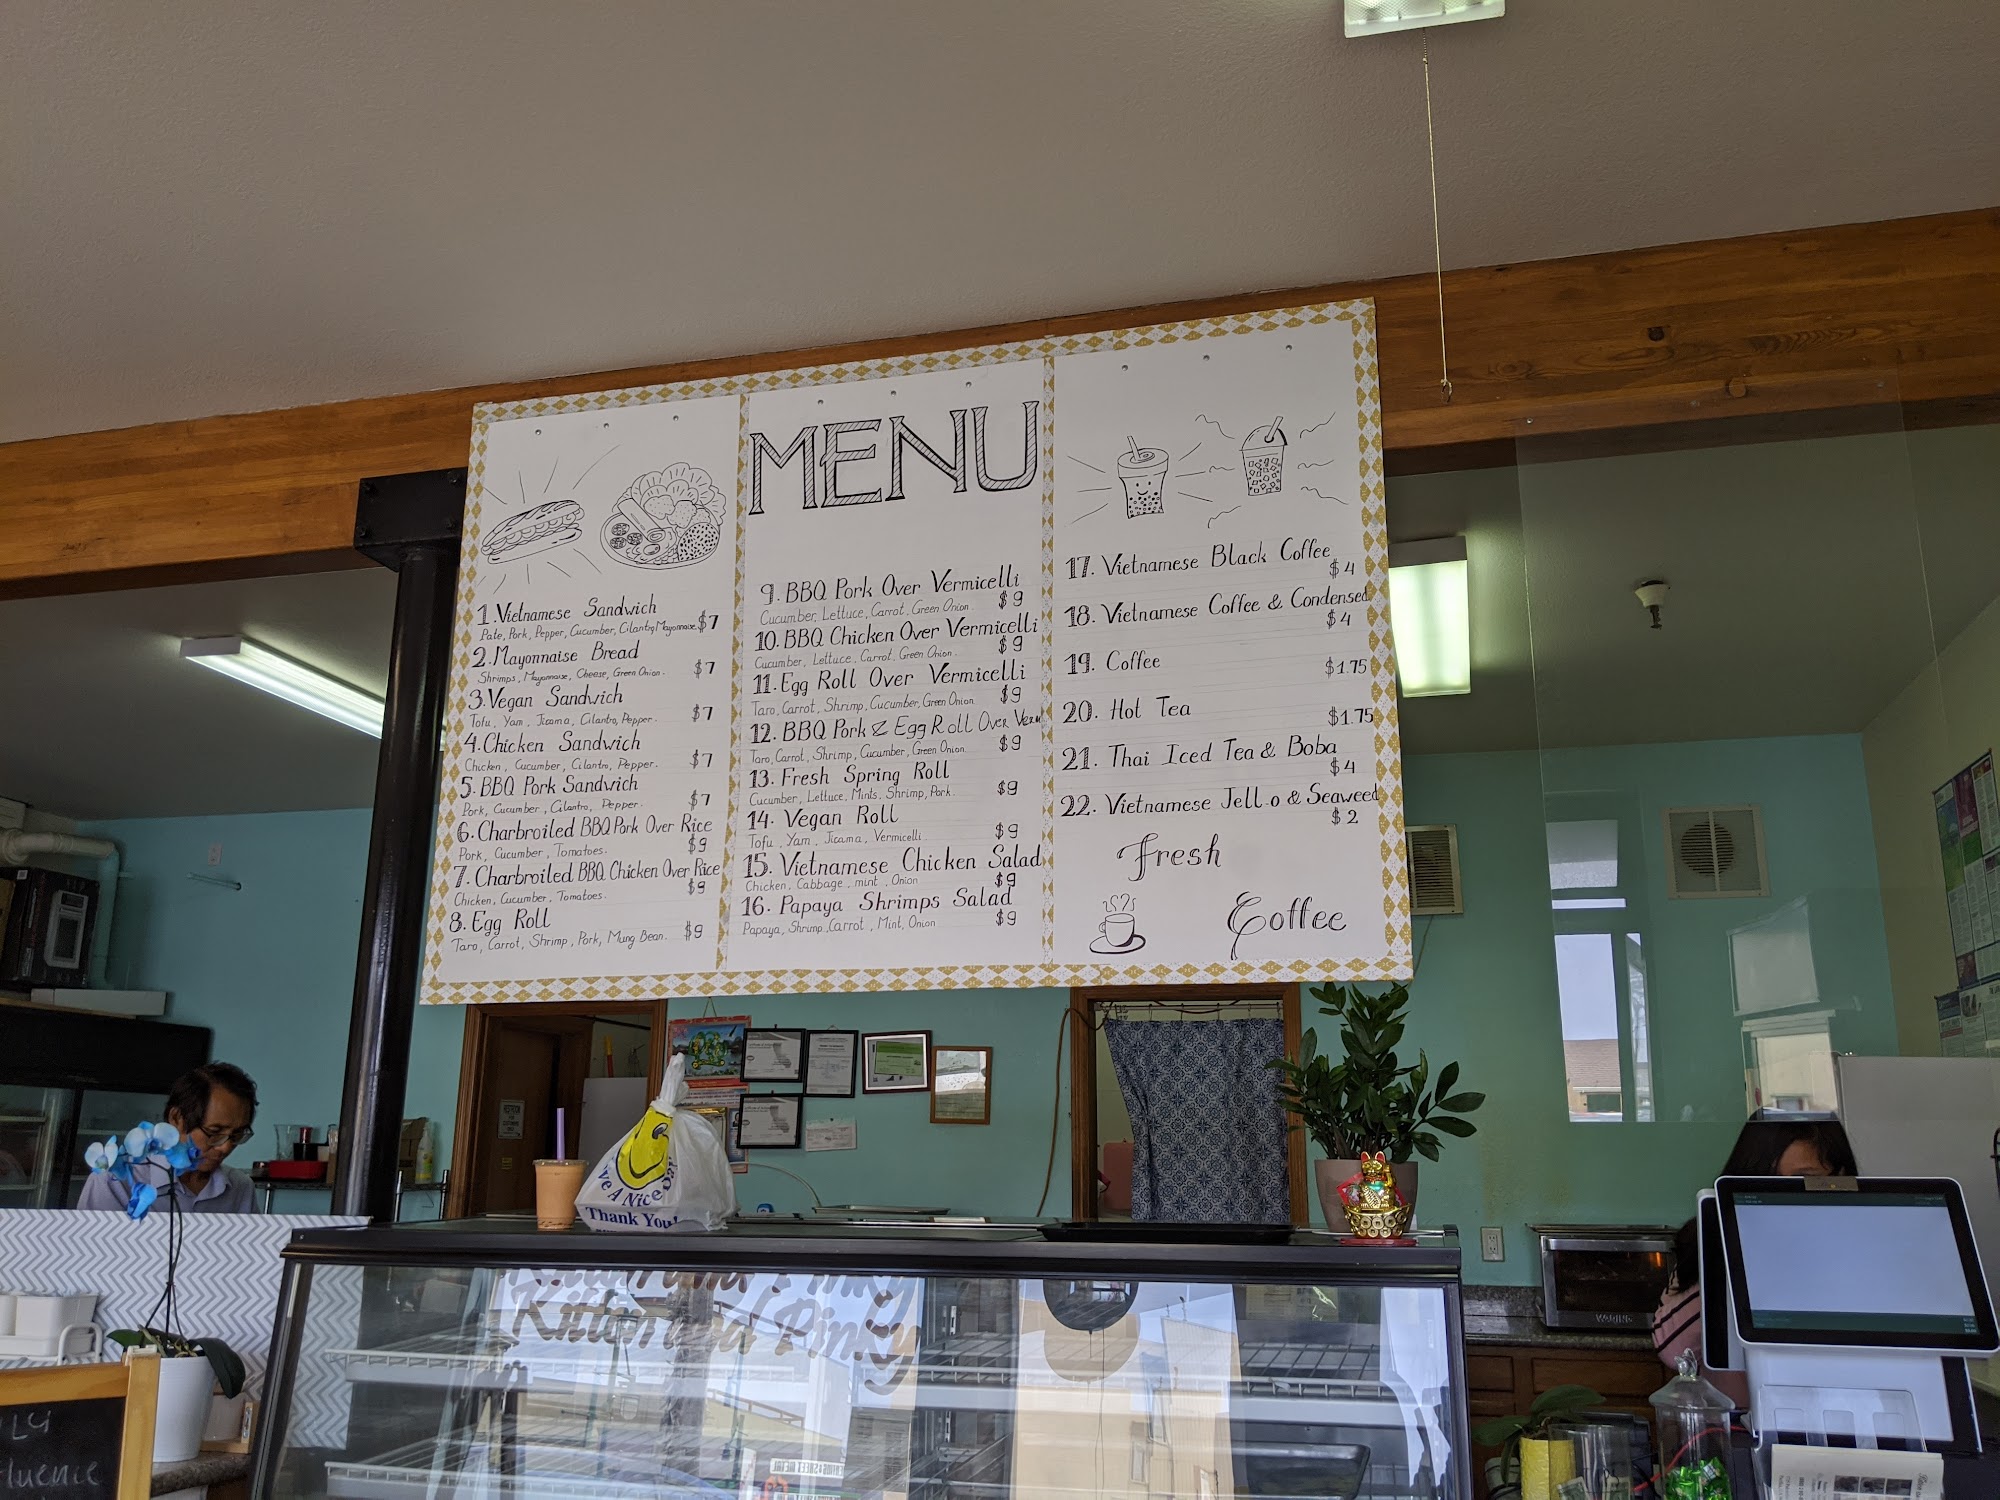 MENU
1. Vietnamese Sandwich
Pate, Pork, Pepper, Cucumber, Cilantro, Mayonnaise. $7
2. Mayonnaise Bread
Shrimps, Mayonnaise, Cheese, Green Onion. $7
3. Vegan Sandwich
Tofu, Yam, Jicama, Cilantro, Pepper. $7
4. Chicken Sandwich
Chicken, Cucumber, Cilantro, Pepper. $7
5. BBQ Pork Sandwich
Pork, Cucumber, Cilantro, Pepper. $7
6. Charbroiled BBQ Pork Over Rice
Pork, Cucumber, Tomatoes. $9
7. Charbroiled BBQ Chicken Over Rice
Chicken, Cucumber, Tomatoes. $9
8. Egg Roll
Taro, Carrot, Shrimp, Pork, Mung Bean. $9
9. BBQ Pork Over Vermicelli
Cucumber, Lettuce, Carrot, Green Onion. $9
10. BBQ Chicken Over Vermicelli
Cucumber, Lettuce, Carrot, Green Onion. $9
11. Egg Roll Over Vermicelli
Taro, Carrot, Shrimp, Cucumber, Green Onion $9
12. BBQ Pork & Egg Roll Over Verm
Taro, Carrot, Shrimp, Cucumber, Green Onion. $9
13. Fresh Spring Roll
Cucumber, Lettuce, Mints, Shrimp, Pork. $9
14. Vegan Roll
Tofu, Yam, Jicama, Vermicelli. $9
15. Vietnamese Chicken Salad
Chicken, Cabbage, mint, Onion $9
16. Papaya Shrimps Salad
Papaya, Shrimp, Carrot, Mint, Onion $9
17. Vietnamese Black Coffee
$4
18. Vietnamese Coffee & Condensed
$4
19. Coffee $1.75
20. Hot Tea $1.75
21. Thai Iced Tea & Boba
$4
22. Vietnamese Jell-o & Seaweed
$2
Fresh
Coffee
Have A Nice Day!
Thank You!
WARING